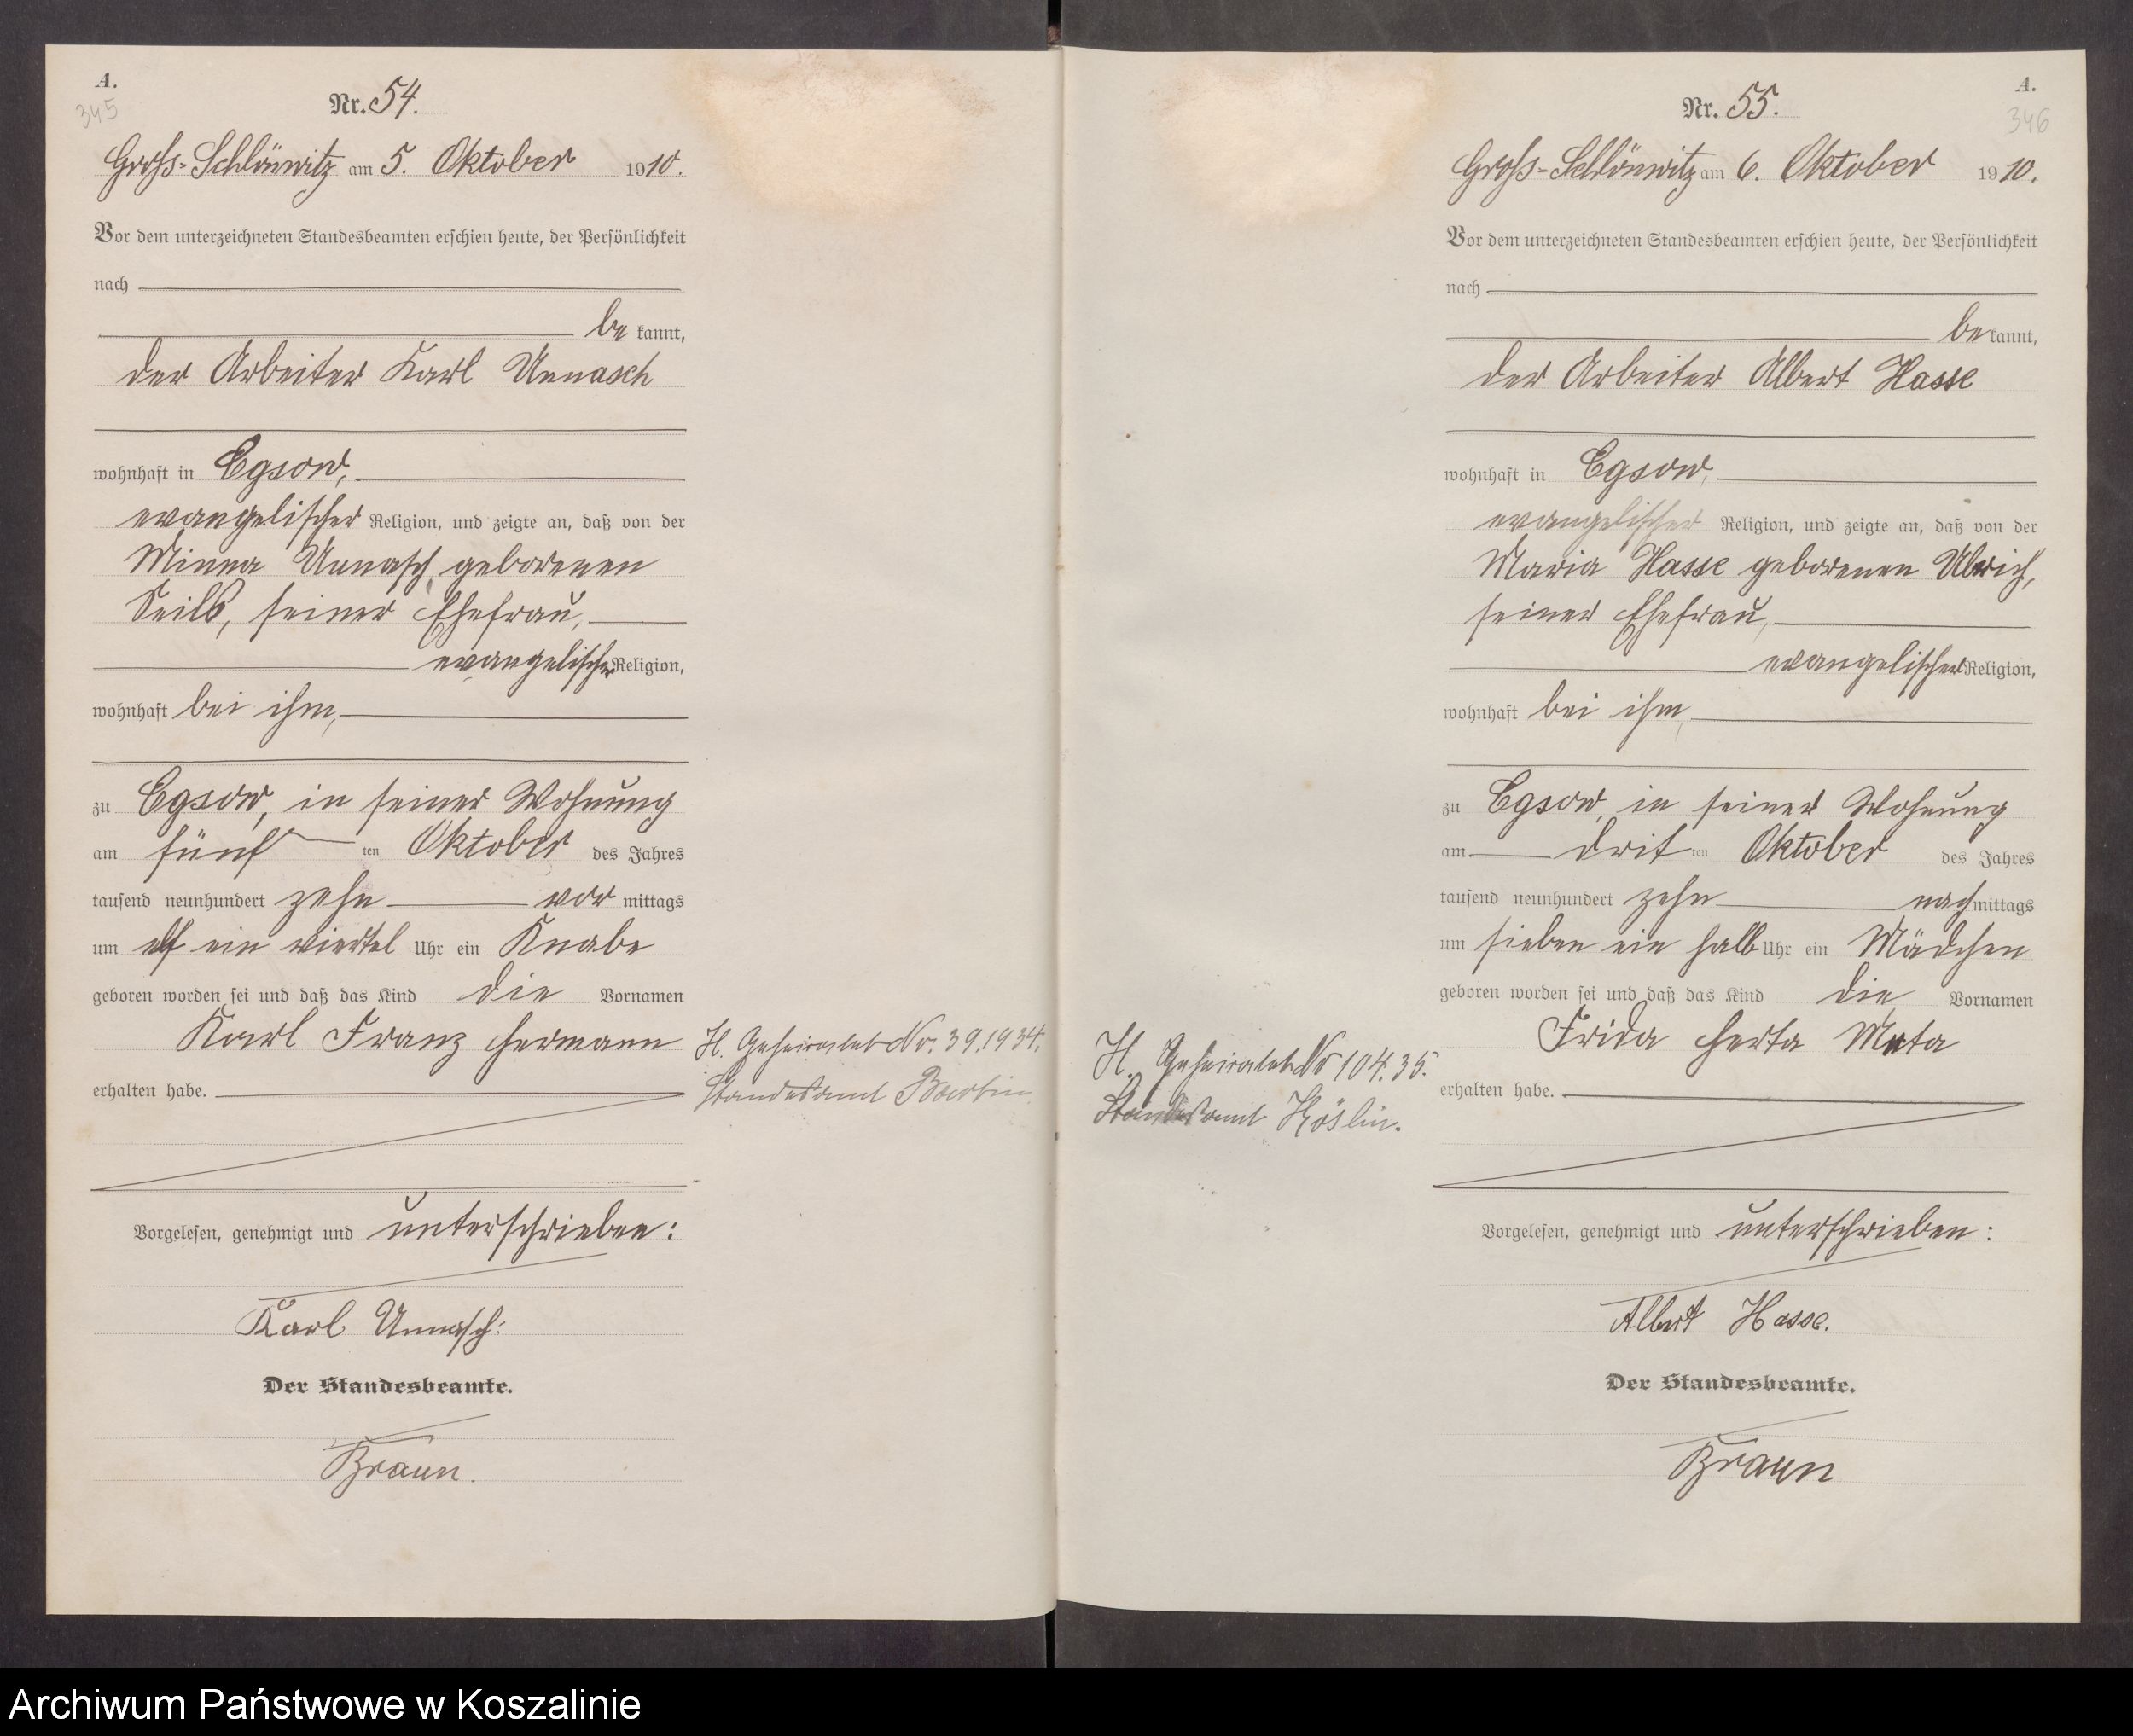 A.
345
Nr. 54.
Gross-Schlönwitz am 5. Oktober 1910.
Vor dem unterzeichneten Standesbeamten erschien heute, der Persönlichkeit
nach
be kannt,
der Arbeiter Karl Unnasch
wohnhaft in Egsow,
evangelischer Religion, und zeigte an, daß von der
Minna Unnasch, geborenen
Seils, seiner Ehefrau,
evangelischer Religion,
wohnhaft bei ihm,
zu Egsow, in seiner Wohnung
am fünf ten Oktober des Jahres
tausend neunhundert zehn vor mittags
um elf ein viertel Uhr ein Knabe
geboren worden sei und daß das Kind die Vornamen
Karl Franz Hermann
erhalten habe.
H. Geheiratet No. 39.1934.
Standesamt
Vorgelesen, genehmigt und unterschrieben:
Karl Unnasch:
Der Standesbeamte.
Braun.
A.
346
Nr. 55.
Gross-Schlönwitz am 6. Oktober 1910.
Vor dem unterzeichneten Standesbeamten erschien heute, der Persönlichkeit
nach
be kannt,
der Arbeiter Albert Hasse
wohnhaft in Egsow,
evangelischer Religion, und zeigte an, daß von der
Maria Hasse geborenen Ulrich,
seiner Ehefrau,
evangelischer Religion,
wohnhaft bei ihm,
zu Egsow, in seiner Wohnung
am drit ten Oktober des Jahres
tausend neunhundert zehn nach mittags
um sieben ein halb Uhr ein Mädchen
geboren worden sei und daß das Kind die Vornamen
Frida Herta Meta
erhalten habe.
H. Geheiratet No 104.35.
Standesamt Köslin.
Vorgelesen, genehmigt und unterschrieben:
Albert Hasse.
Der Standesbeamte.
Braun
Archiwum Państwowe w Koszalinie